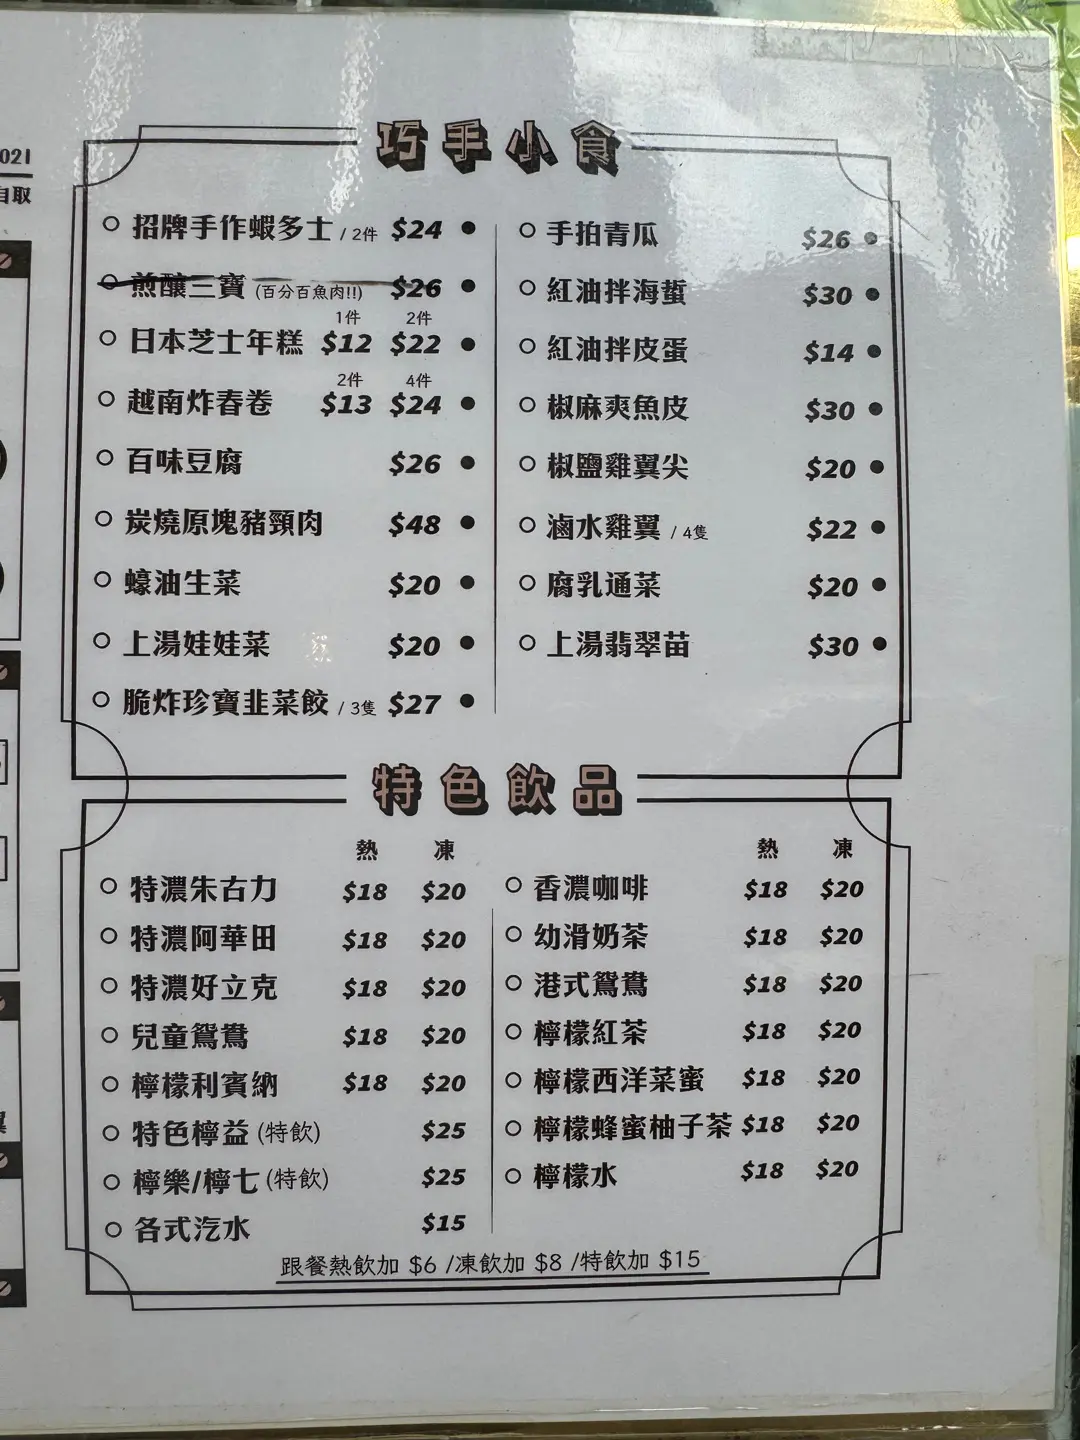 021
自取
巧手小食
招牌手作蝦多士 / 2件 $24
煎釀三寶 (百分百魚肉!!) $26
1件 2件
日本芝士年糕 $12 $22
2件 4件
越南炸春卷 $13 $24
百味豆腐 $26
炭燒原塊豬頸肉 $48
蠔油生菜 $20
上湯娃娃菜 $20
脆炸珍寶韭菜餃 / 3隻 $27
手拍青瓜 $26
紅油拌海蜇 $30
紅油拌皮蛋 $14
椒麻爽魚皮 $30
椒鹽雞翼尖 $20
滷水雞翼 / 4隻 $22
腐乳通菜 $20
上湯翡翠苗 $30
特色飲品
熱 凍
特濃朱古力 $18 $20
特濃阿華田 $18 $20
特濃好立克 $18 $20
兒童鴛鴦 $18 $20
檸檬利賓納 $18 $20
特色檸益 (特飲) $25
檸樂/檸七 (特飲) $25
各式汽水 $15
熱 凍
香濃咖啡 $18 $20
幼滑奶茶 $18 $20
港式鴛鴦 $18 $20
檸檬紅茶 $18 $20
檸檬西洋菜蜜 $18 $20
檸檬蜂蜜柚子茶 $18 $20
檸檬水 $18 $20
跟餐熱飲加 $6 /凍飲加 $8 /特飲加 $15